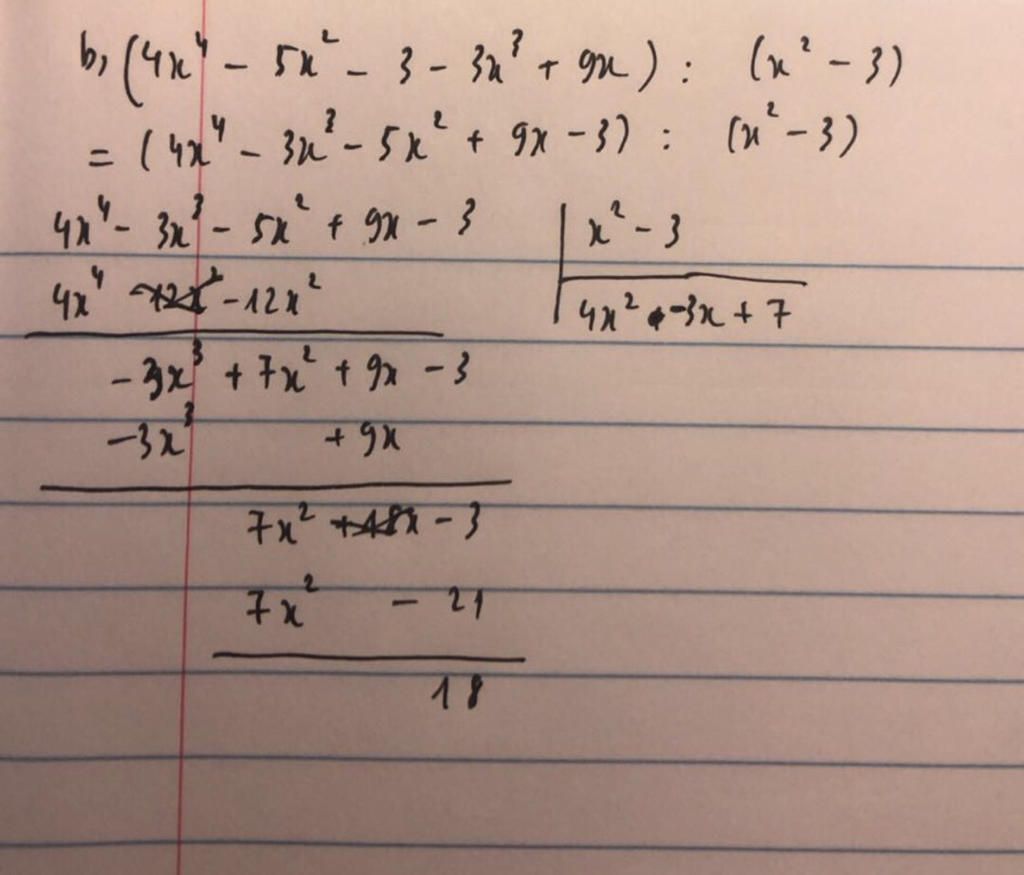 b, (4x⁴ - 5x² - 3 - 3x³ + 9x) : (x² - 3)
= (4x⁴ - 3x³ - 5x² + 9x - 3) : (x² - 3)
4x⁴ - 3x³ - 5x² + 9x - 3 | x² - 3
4x⁴ - 12x² | 4x² - 3x + 7
- 3x³ + 7x² + 9x - 3
- 3x³ + 9x
7x² - 3
7x² - 21
18